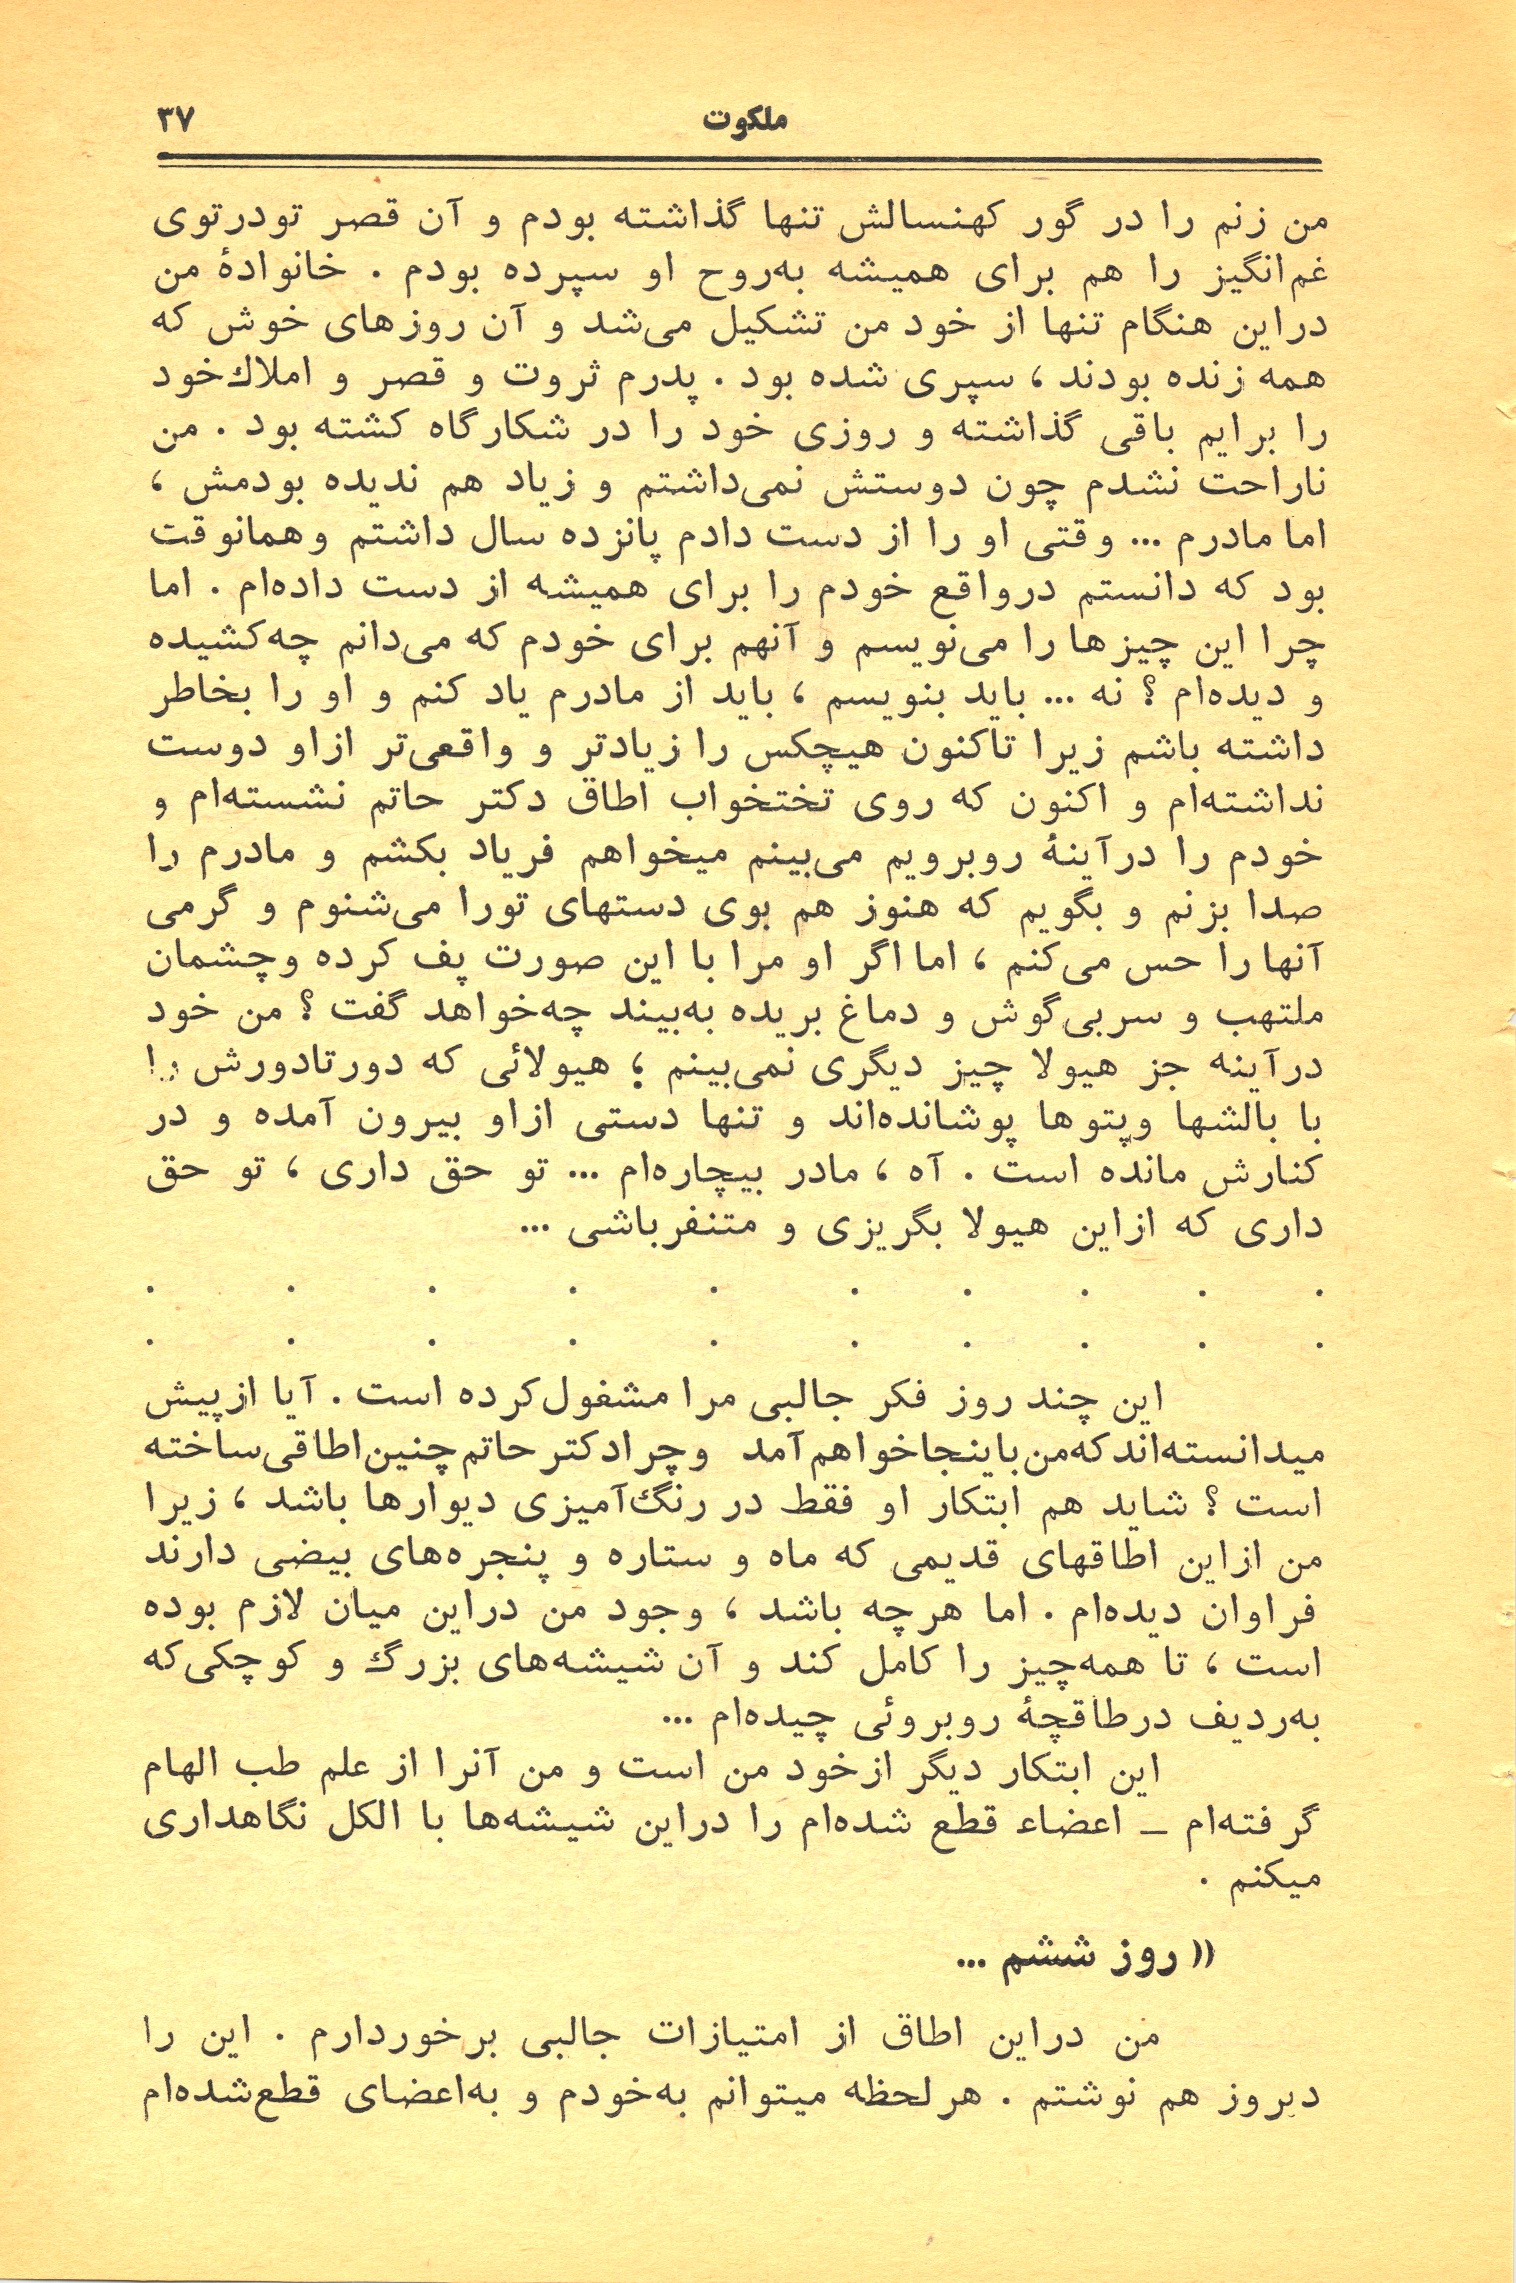 ملکوت ۳۷
من زنم را در گور کهنسالش تنها گذاشته بودم و آن قصر تودرتوی
غم‌انگیز را هم برای همیشه به‌روح او سپرده بودم . خانوادهٔ من
دراین هنگام تنها از خود من تشکیل می‌شد و آن روزهای خوش که
همه زنده بودند ، سپری شده بود . پدرم ثروت و قصر و املاك‌خود
را برایم باقی گذاشته و روزی خود را در شکارگاه کشته بود . من
ناراحت نشدم چون دوستش نمی‌داشتم و زیاد هم ندیده بودمش ،
اما مادرم ... وقتی او را از دست دادم پانزده سال داشتم وهمانوقت
بود که دانستم درواقع خودم را برای همیشه از دست داده‌ام . اما
چرا این چیزها را می‌نویسم و آنهم برای خودم که می‌دانم چه‌کشیده
و دیده‌ام ؟ نه ... باید بنویسم ، باید از مادرم یاد کنم و او را بخاطر
داشته باشم زیرا تاکنون هیچکس را زیادتر و واقعی‌تر ازاو دوست
نداشته‌ام و اکنون که روی تختخواب اطاق دکتر حاتم نشسته‌ام و
خودم را درآینهٔ روبرویم می‌بینم میخواهم فریاد بکشم و مادرم را
صدا بزنم و بگویم که هنوز هم بوی دستهای تورا می‌شنوم و گرمی
آنها را حس می‌کنم ، اما اگر او مرا با این صورت پف کرده وچشمان
ملتهب و سربی‌گوش و دماغ بریده به‌بیند چه‌خواهد گفت ؟ من خود
درآینه جز هیولا چیز دیگری نمی‌بینم ؛ هیولائی که دورتادورش را
با بالشها وپتوها پوشانده‌اند و تنها دستی ازاو بیرون آمده و در
کنارش مانده است . آه ، مادر بیچاره‌ام ... تو حق داری ، تو حق
داری که ازاین هیولا بگریزی و متنفرباشی ...
. . . . . . . . . .
. . . . . . . . . .
این چند روز فکر جالبی مرا مشغول‌کرده است . آیا ازپیش
میدانسته‌اند که‌من باینجاخواهم‌آمد وچرا دکتر حاتم چنین اطاقی‌ساخته
است ؟ شاید هم ابتکار او فقط در رنگ‌آمیزی دیوارها باشد ، زیرا
من ازاین اطاقهای قدیمی که ماه و ستاره و پنجره‌های بیضی دارند
فراوان دیده‌ام . اما هرچه باشد ، وجود من دراین میان لازم بوده
است ، تا همه‌چیز را کامل کند و آن شیشه‌های بزرگ و کوچکی‌که
به‌ردیف درطاقچهٔ روبروئی چیده‌ام ...
این ابتکار دیگر ازخود من است و من آنرا از علم طب الهام
گرفته‌ام ــ اعضاء قطع شده‌ام را دراین شیشه‌ها با الکل نگاهداری
میکنم .
« روز ششم ...
من دراین اطاق از امتیازات جالبی برخوردارم . این را
دیروز هم نوشتم . هرلحظه میتوانم به‌خودم و به‌اعضای قطع‌شده‌ام